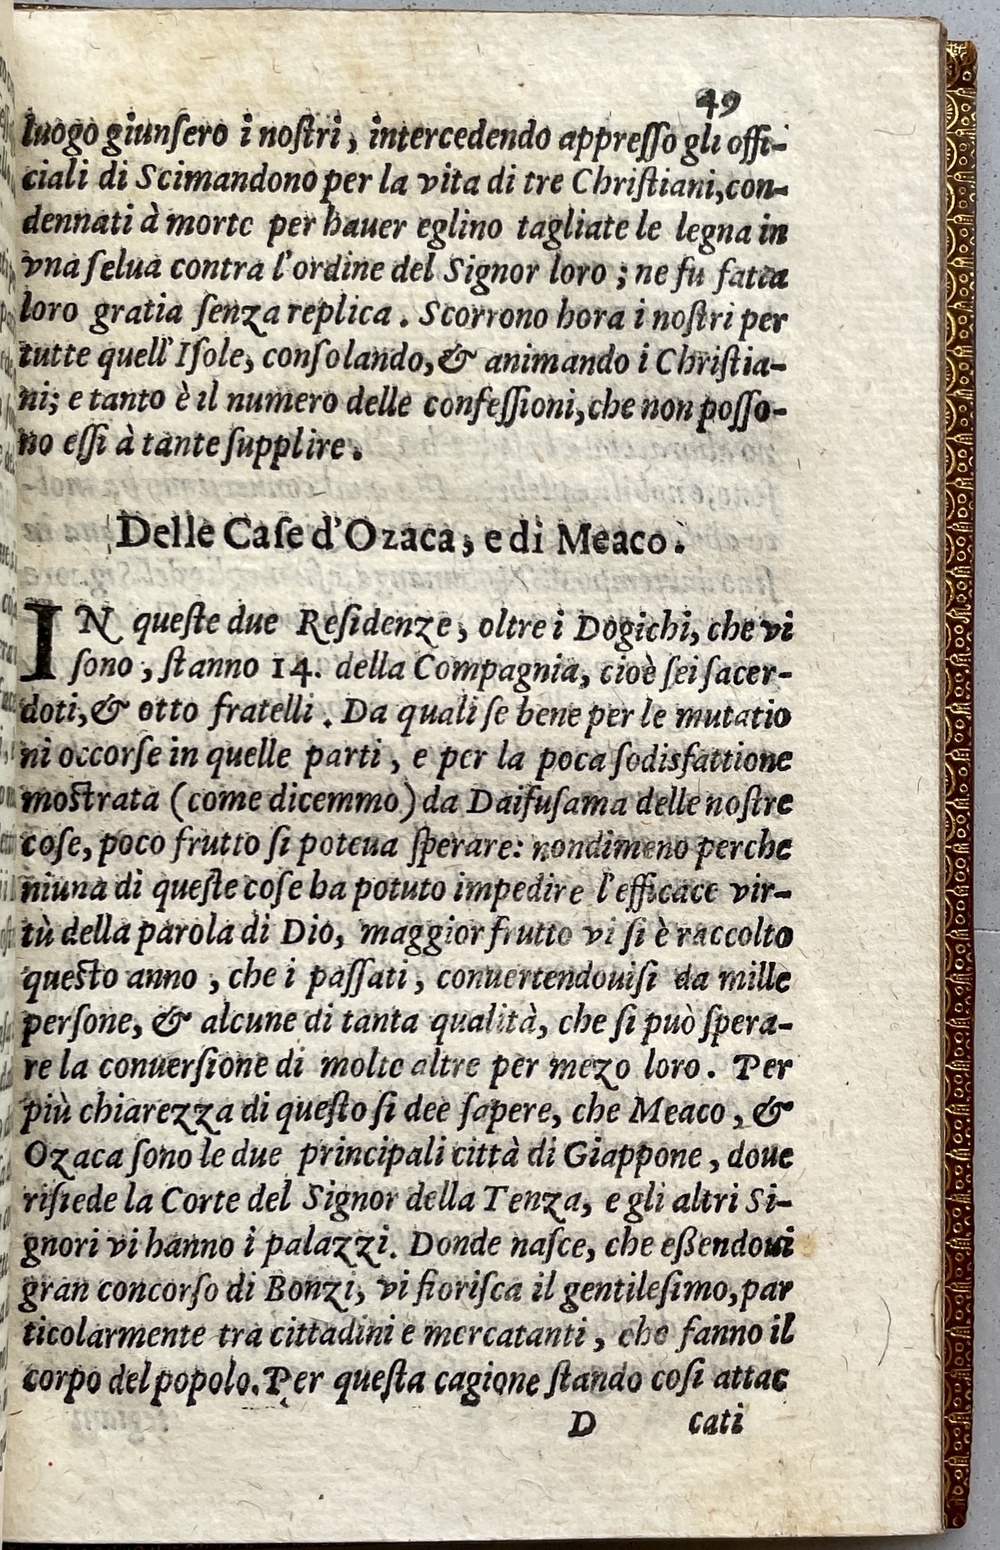 49
luogo giunſero i noſtri, intercedendo appreſſo gli offi-
ciali di Scimandono per la vita di tre Chriſtiani, con-
dennati à morte per hauer eglino tagliate le legna in
vna ſelua contra l'ordine del Signor loro; ne fu fatta
loro gratia ſenza replica. Scorrono hora i noſtri per
tutte quell'Iſole, conſolando, & animando i Chriſtia-
ni; e tanto è il numero delle confeſſioni, che non poſſo-
no eſſi à tante ſupplire.
Delle Caſe d'Ozaca, e di Meaco.
IN queſte due Reſidenze, oltre i Dogichi, che vi
ſono, ſtanno 14. della Compagnia, cioè ſei ſacer-
doti, & otto fratelli. Da quali ſe bene per le mutatio
ni occorſe in quelle parti, e per la poca ſodisfattione
moſtrata (come dicemmo) da Daifuſama delle noſtre
coſe, poco frutto ſi poteua ſperare: nondimeno perche
niuna di queſte coſe ha potuto impedire l'efficace vir-
tù della parola di Dio, maggior frutto vi ſi è raccolto
queſto anno, che i paſſati, conuertendouiſi da mille
perſone, & alcune di tanta qualità, che ſi può ſpera-
re la conuerſione di molte altre per mezo loro. Per
più chiarezza di queſto ſi dee ſapere, che Meaco, &
Ozaca ſono le due principali città di Giappone, doue
riſiede la Corte del Signor della Tenza, e gli altri Si-
gnori vi hanno i palazzi. Donde naſce, che eßendoui
gran concorſo di Bonzi, vi fioriſca il gentileſimo, par
ticolarmente tra cittadini e mercatanti, che fanno il
corpo del popolo. Per queſta cagione ſtando coſi attac
D cati